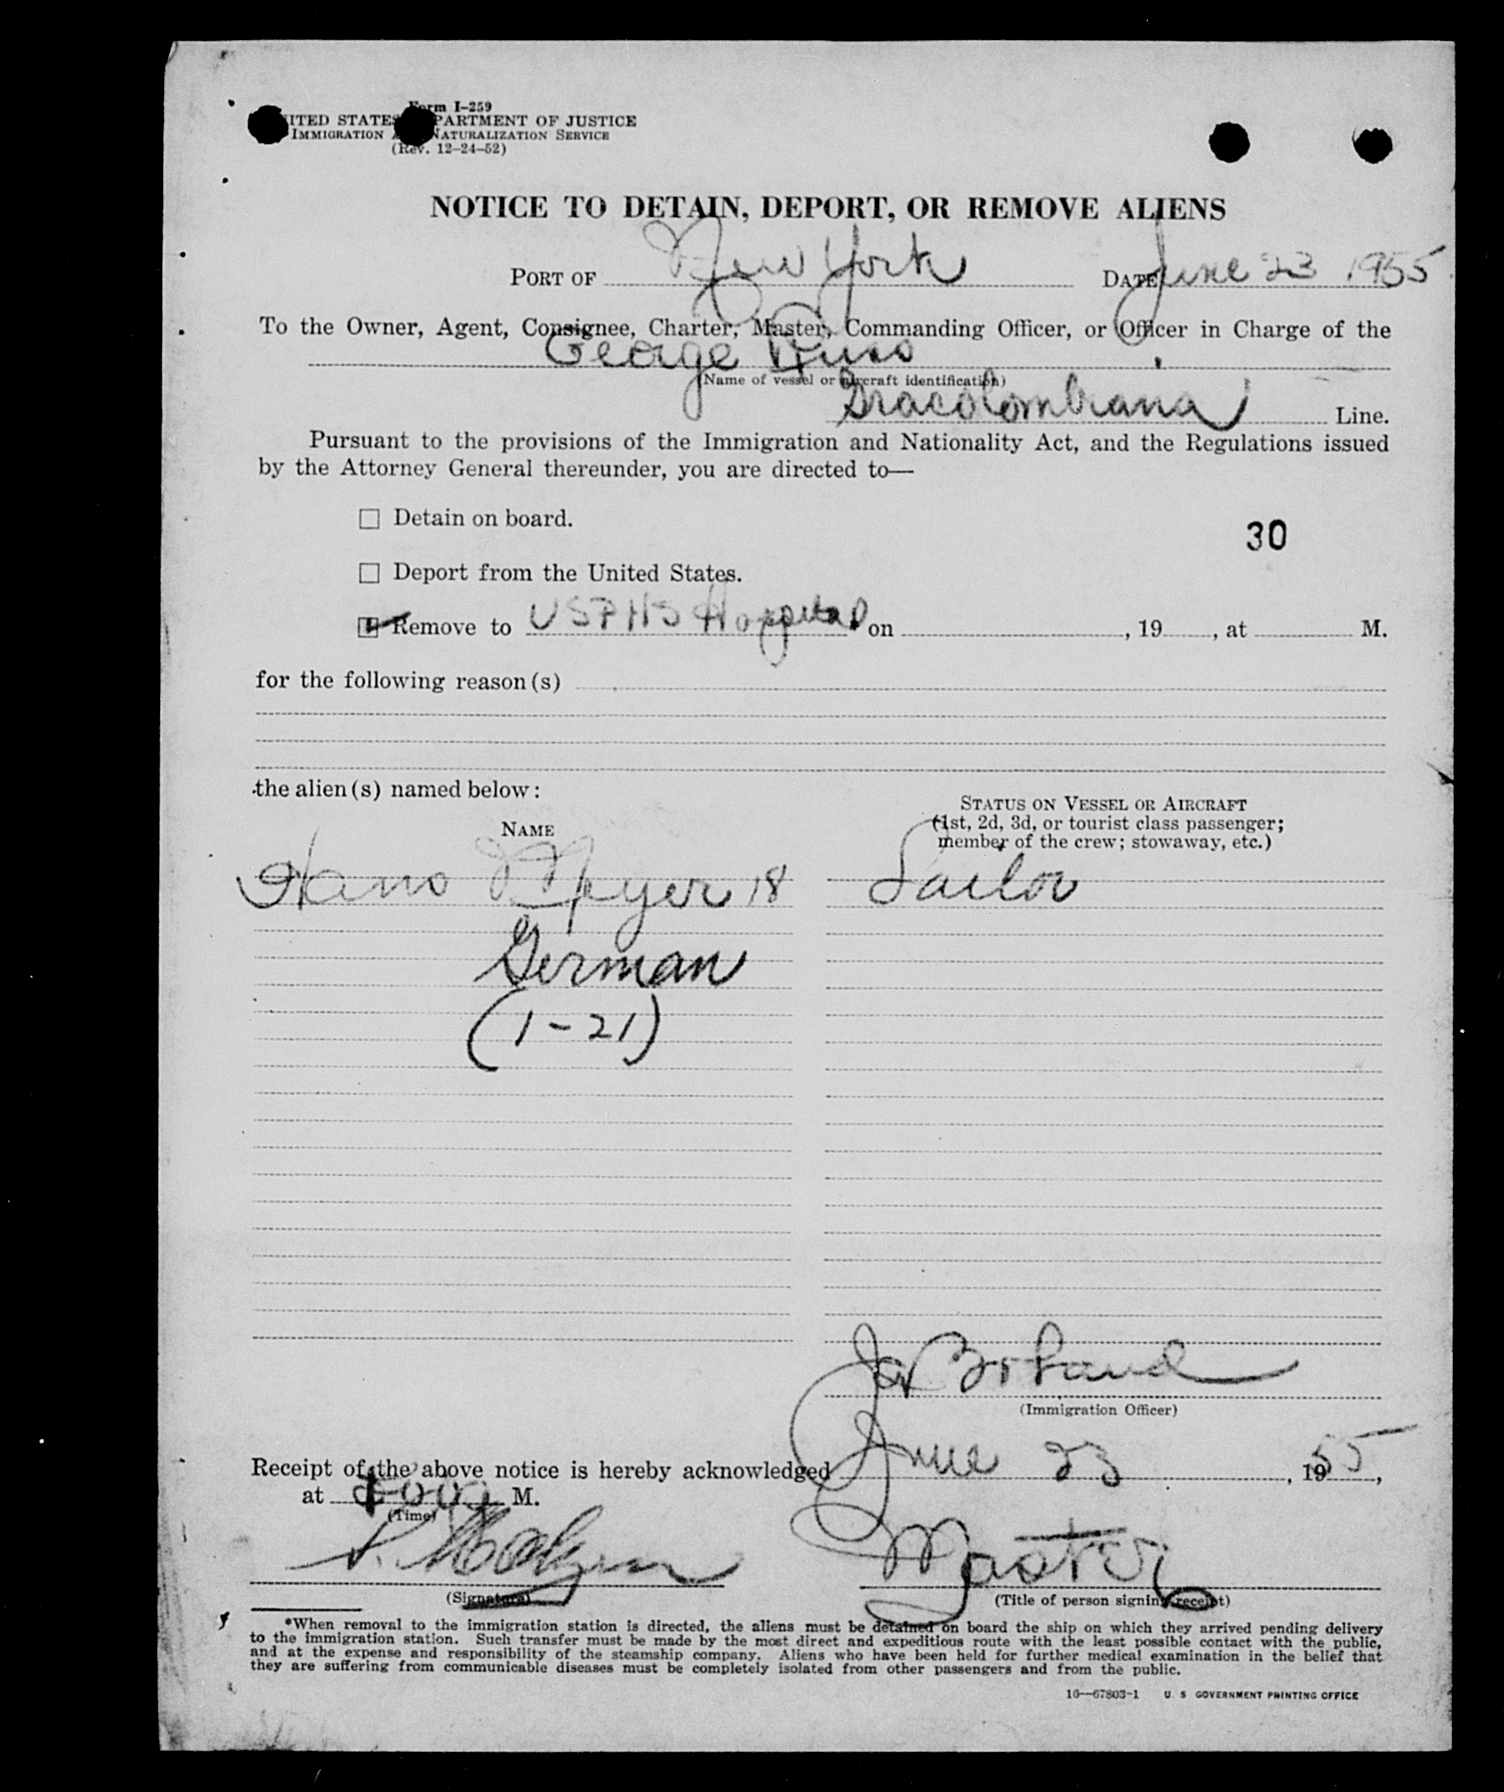 Form I-259
UNITED STATES DEPARTMENT OF JUSTICE
IMMIGRATION AND NATURALIZATION SERVICE
(Rev. 12-24-52)
NOTICE TO DETAIN, DEPORT, OR REMOVE ALIENS
PORT OF New York DATE June 23 1955
To the Owner, Agent, Consignee, Charter, Master, Commanding Officer, or Officer in Charge of the
George
(Name of vessel or aircraft identification)
Gracolombiana Line.
Pursuant to the provisions of the Immigration and Nationality Act, and the Regulations issued
by the Attorney General thereunder, you are directed to—
☐ Detain on board.
30
☐ Deport from the United States.
Remove to USPHS Hospital on , 19 , at M.
for the following reason(s)
the alien(s) named below:
STATUS ON VESSEL OR AIRCRAFT
NAME (1st, 2d, 3d, or tourist class passenger;
member of the crew; stowaway, etc.)
Hans Meyer 18 Sailor
German
(1-21)
(Immigration Officer)
Receipt of the above notice is hereby acknowledged June 23, 1955,
at M.
(Time)
Master
(Signature) (Title of person signing receipt)
*When removal to the immigration station is directed, the aliens must be detained on board the ship on which they arrived pending delivery
to the immigration station. Such transfer must be made by the most direct and expeditious route with the least possible contact with the public,
and at the expense and responsibility of the steamship company. Aliens who have been held for further medical examination in the belief that
they are suffering from communicable diseases must be completely isolated from other passengers and from the public.
16—67803-1 U. S. GOVERNMENT PRINTING OFFICE